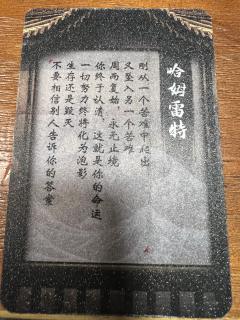 哈姆雷特
刚从一个苦难中爬出
又坠入另一个苦难
周而复始，永无止境
你终于认清，这就是你的命运
一切努力终将化为泡影
生存还是毁灭
不要相信别人告诉你的答案